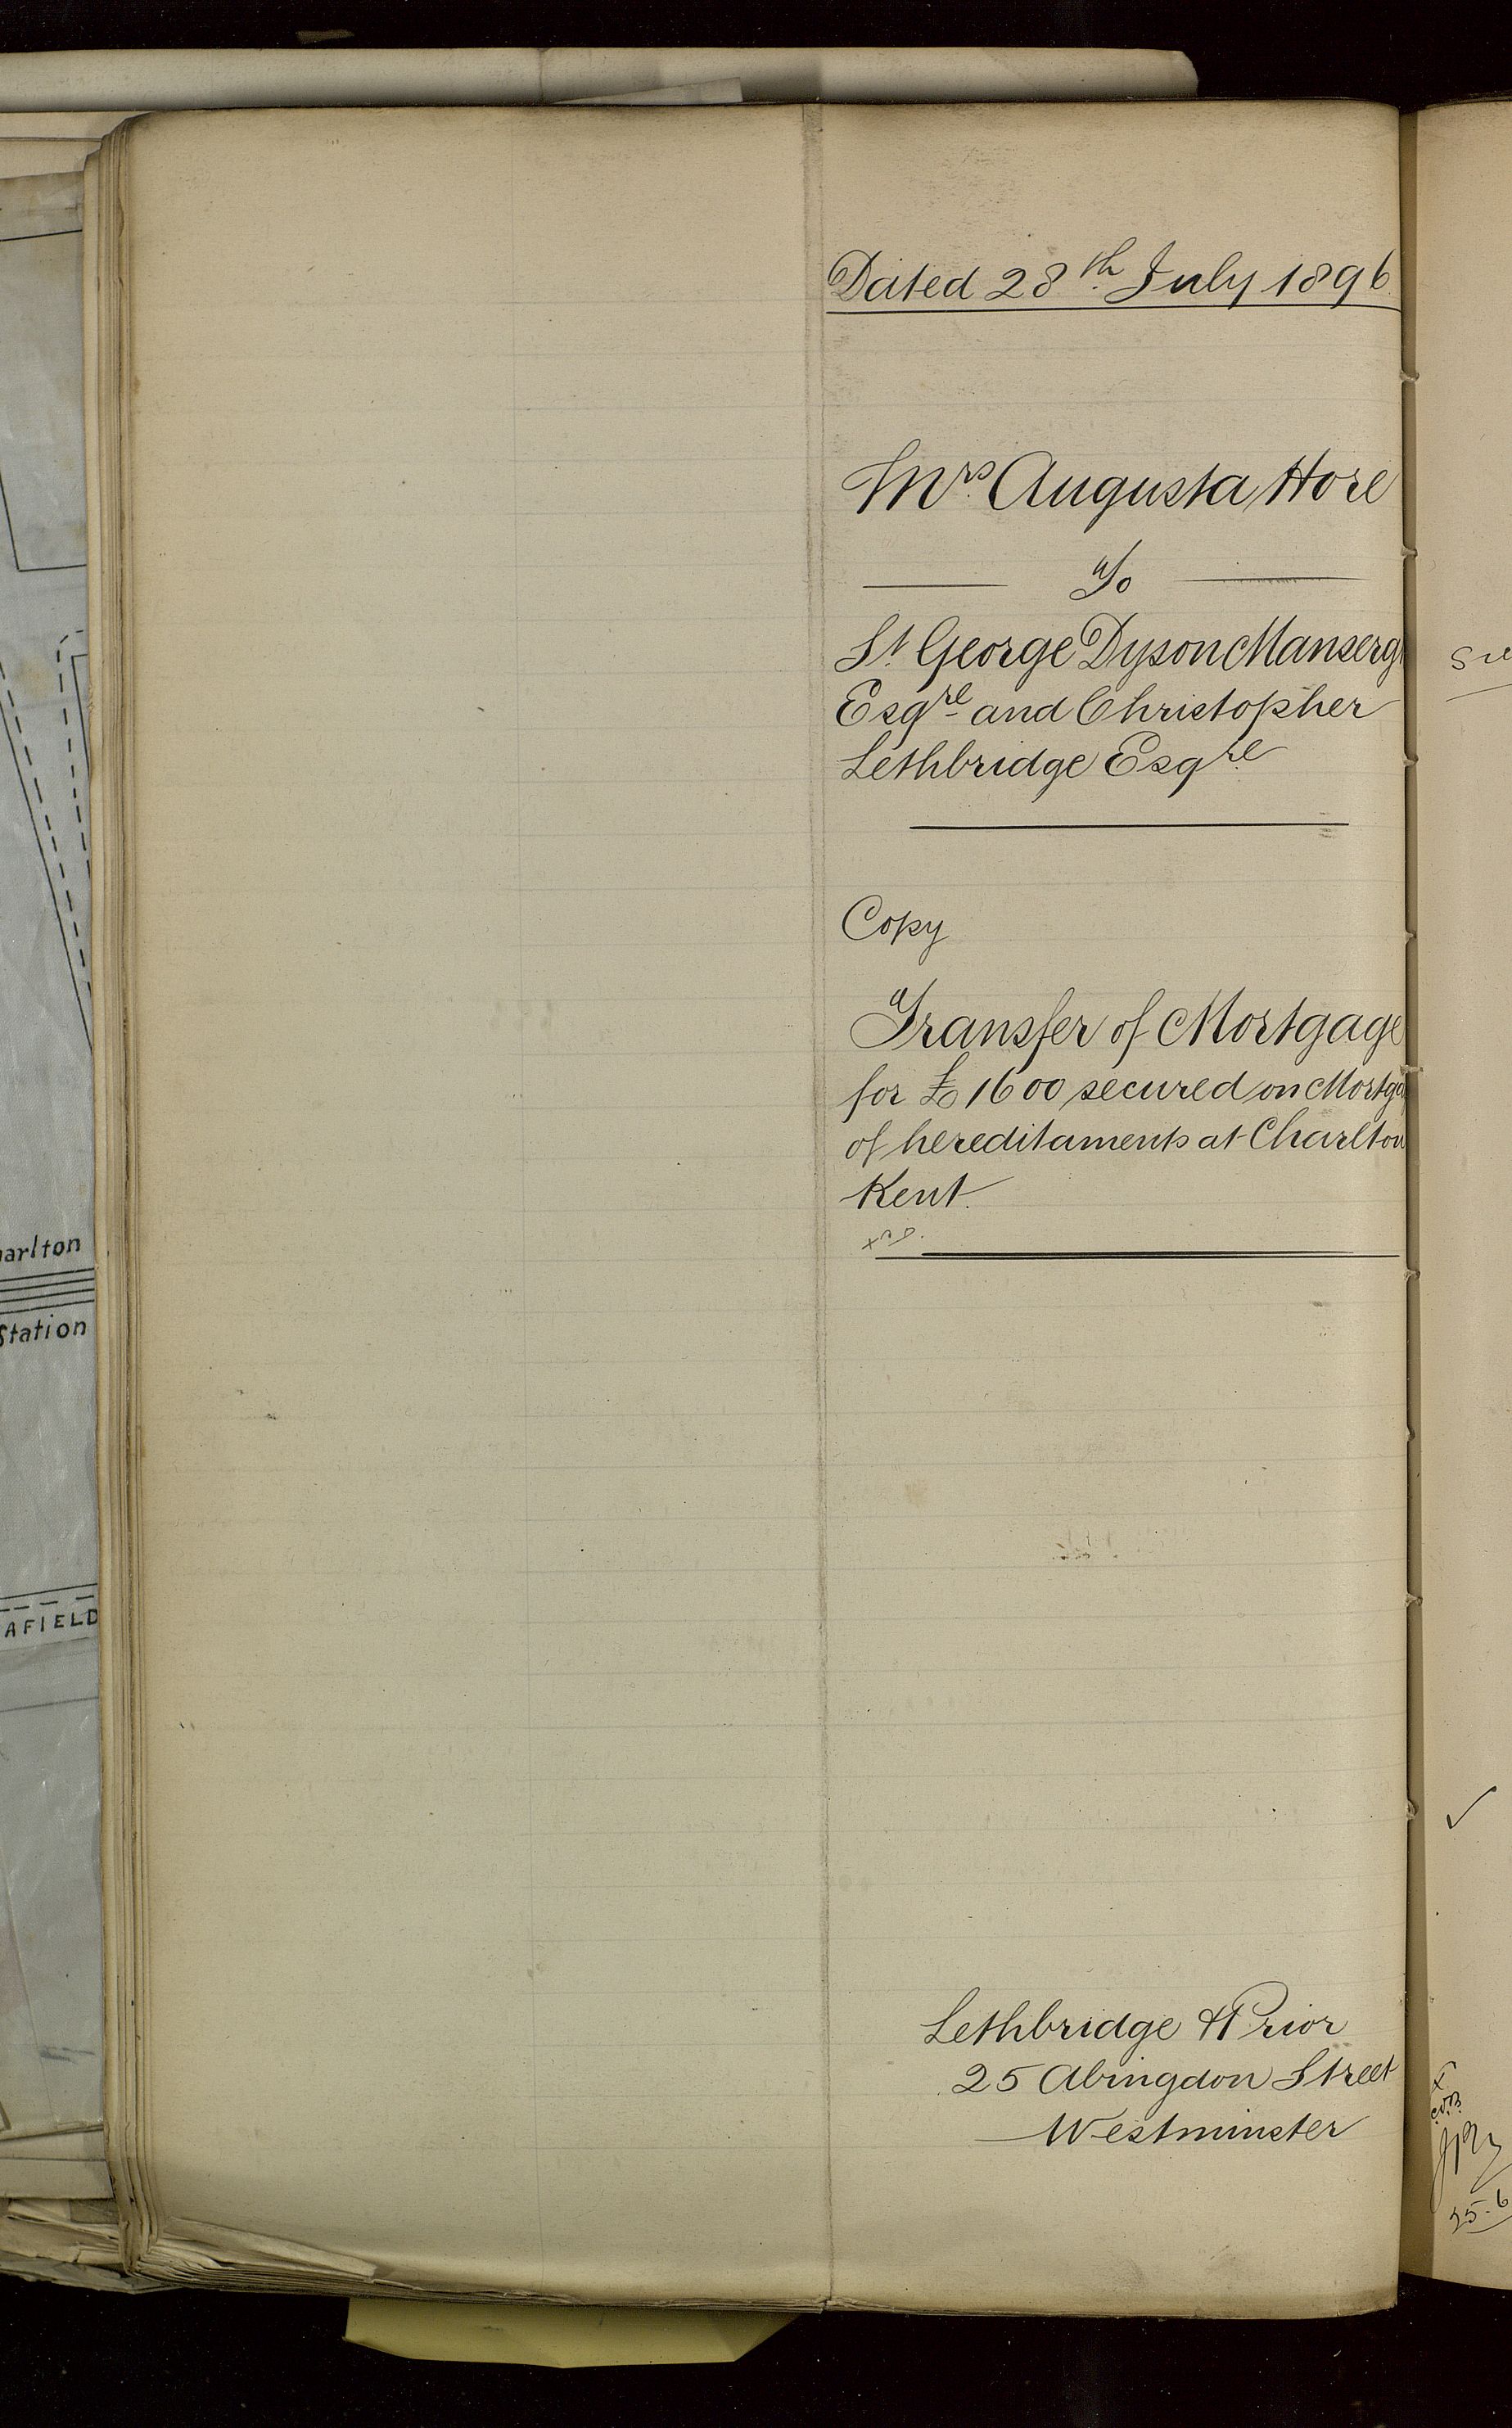 Dated 28th July 1896
Mrs Augusta Hore
To
St George Dyson Mansergh
Esqre and Christopher
Lethbridge Esqre
Copy
Transfer of Mortgage
for £1600 secured on Mortga
of hereditaments at Charlton
Kent.
Lethbridge & Prior
25 Abingdon Street
Westminster
arlton
Station
AFIELD
25-6